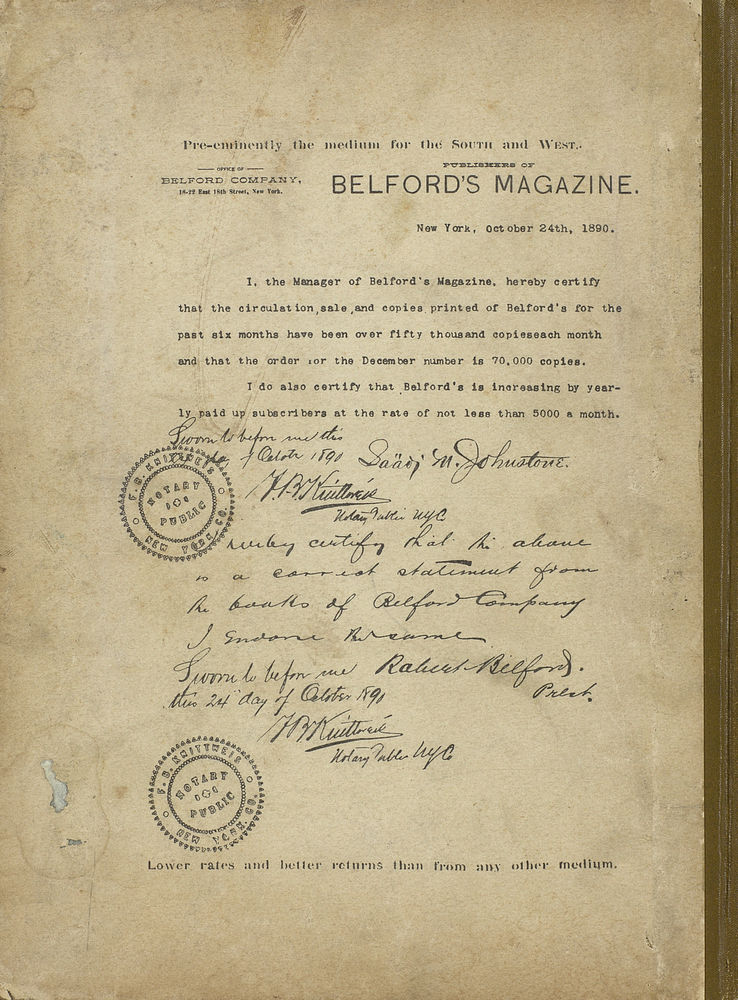 Pre-eminently the medium for the South and West.
OFFICE OF
BELFORD COMPANY,
18-22 East 18th Street, New York.
PUBLISHERS OF
BELFORD'S MAGAZINE.
New York, October 24th, 1890.
I, the Manager of Belford's Magazine, hereby certify
that the circulation,sale,and copies printed of Belford's for the
past six months have been over fifty thousand copieseach month
and that the order for the December number is 70,000 copies.
I do also certify that Belford's is increasing by year-
ly paid up subscribers at the rate of not less than 5000 a month.
Sworn to before me this
day of October 1890
Säädi M. Johnstone.
F. B. Knittweis
Notary Public NYC
F. B. KNITTWEIS
NOTARY
PUBLIC
NEW YORK CO.
hereby certify that the above
is a correct statement from
the books of Belford Company
I endorse the same
Robert Belford.
Prest.
Sworn to before me
this 24 day of October 1890
F B Knittweis
Notary Public NYCo
F. B. KNITTWEIS
NOTARY
PUBLIC
NEW YORK CO.
Lower rates and better returns than from any other medium.